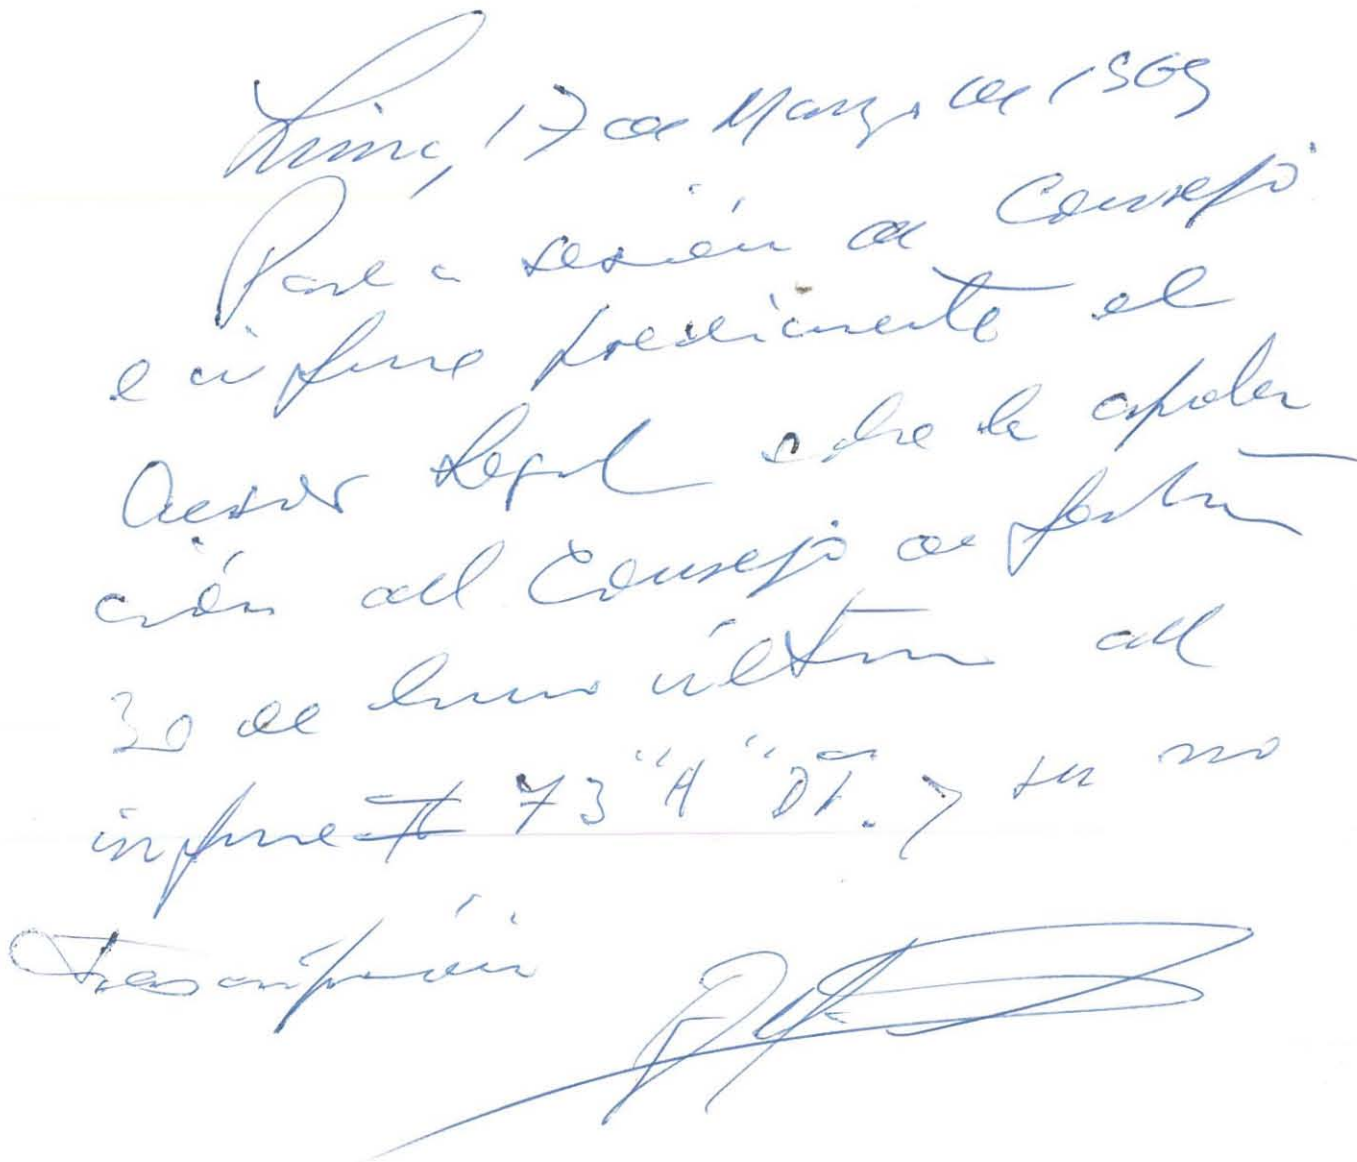 Lima, 17 de Marzo de 1969
Pase a sesión de Consejo
e informe previamente el
Asesor Legal sobre la
ción del Consejo de
30 de Enero último del
informe # 73 "A" DT. y su no
trascripción